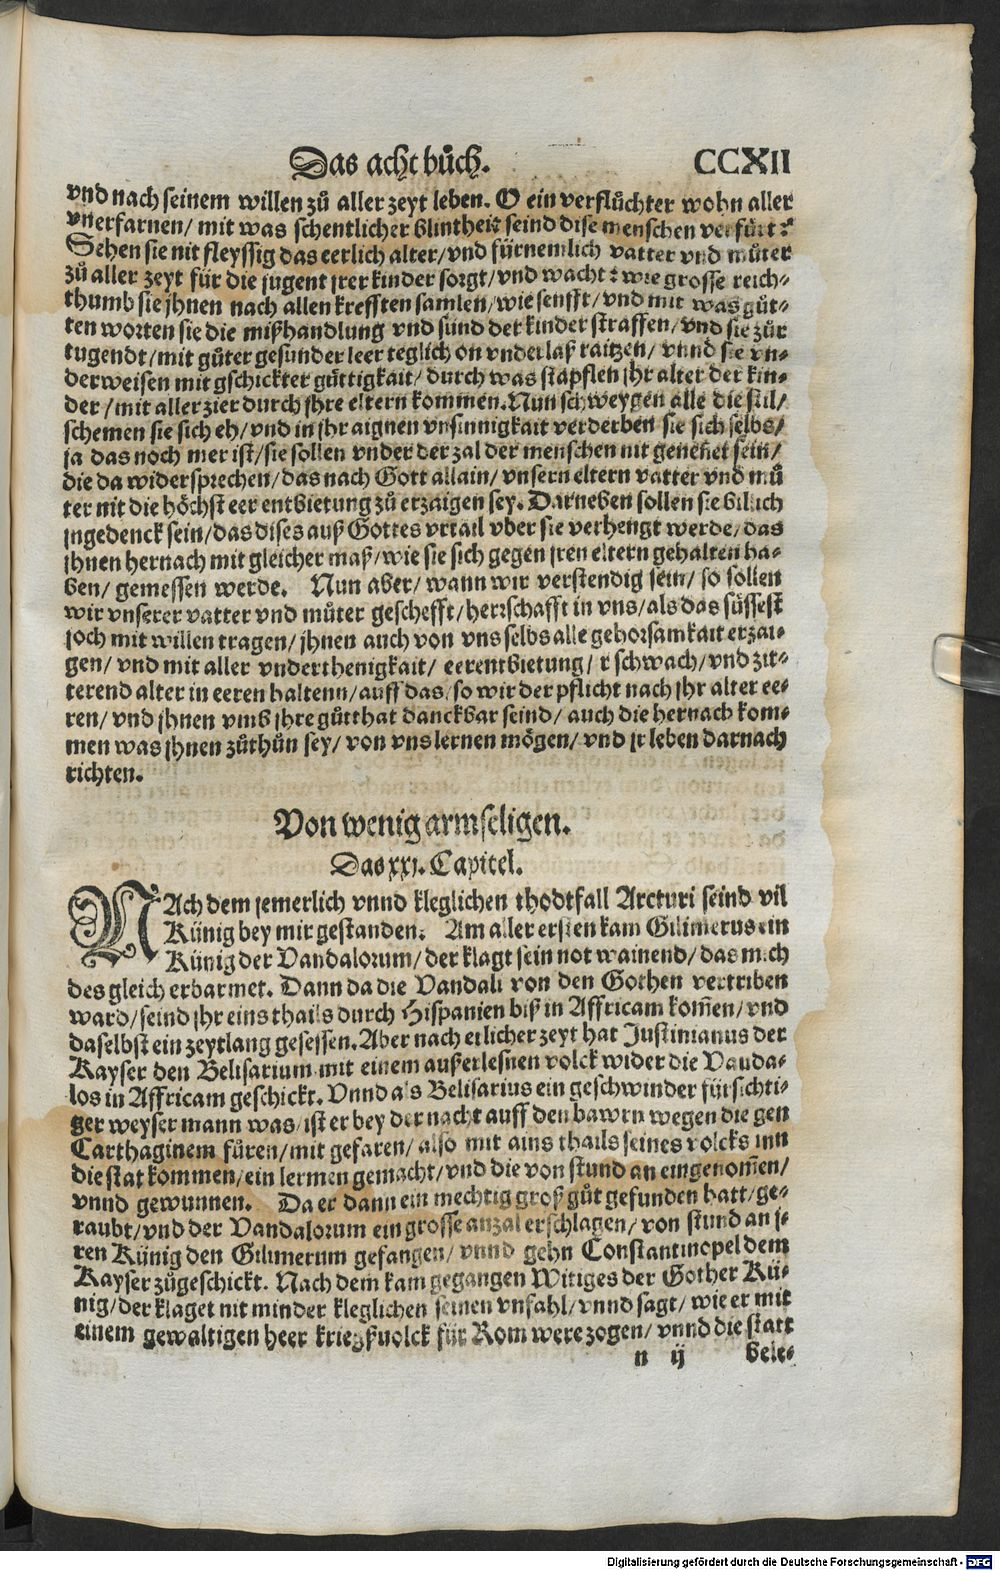 Das acht bůch. CCXII
vnd nach seinem willen zů aller zeyt leben. O ein verflůchter wohn aller
vnerfarnen/ mit was schentlicher blintheit seind dise menschen verfůrt?
Sehen sie nit fleyssig das eerlich alter/ vnd fürnemlich vatter vnd můter
zů aller zeyt für die jugent jrer kinder sorgt/ vnd wacht? wie grosse reich-
thumb sie jhnen nach allen krefften samlen/ wie senfft/ vnd mit was gůt-
ten worten sie die mißhandlung vnd sünd der kinder straffen/ vnd sie zůr
tugendt/ mit gůter gesunder leer teglich on vnderlaß raitzen/ vnnd sie vn-
derweisen mit gschickter gůttigkait/ durch was stapflen jhr alter der kin-
der/ mit aller zier durch jhre eltern kommen. Nun schweygen alle die stil/
schemen sie sich eh/ vnd in jhr aignen vnsinnigkait verderben sie sich selbs/
ja das noch mer ist/ sie sollen vnder der zal der menschen nit geneñet sein/
die da widersprechen/ das nach Gott allain/ vnsern eltern vatter vnd mů
ter nit die höchst eer entbietung zů erzaigen sey. Darneben sollen sie billich
jngedenck sein/ das dises auß Gottes vrtail vber sie verhengt werde/ das
jhnen hernach mit gleicher maß/ wie sie sich gegen jren eltern gehalten ha-
ben/ gemessen werde. Nun aber/ wann wir verstendig sein/ so sollen
wir vnserer vatter vnd můter geschefft/ herrschafft in vns/ als das süssest
joch mit willen tragen/ jhnen auch von vns selbs alle gehorsamkait erzai-
gen/ vnd mit aller vnderthenigkait/ eerentbietung/ r schwach/ vnd zit-
terend alter in eeren haltenn/ auff das/ so wir der pflicht nach jhr alter ee-
ren/ vnd jhnen vmb jhre gůtthat danckbar seind/ auch die hernach kom-
men was jhnen zůthůn sey/ von vns lernen mögen/ vnd jr leben darnach
richten.
Von wenig armseligen.
Das xxj. Capitel.
NAch dem jemerlich vnnd kleglichen thodtfall Arcturi seind vil
Künig bey mir gestanden. Am aller ersten kam Gilimerus ein
Künig der Vandalorum/ der klagt sein not wainend/ das mich
des gleich erbarmet. Dann da die Vandali von den Gothen vertriben
ward/ seind jhr eins thails durch Hispanien biß in Affricam kom̃en/ vnd
daselbst ein zeytlang gesessen. Aber nach etlicher zeyt hat Justinianus der
Kayser den Belisarium mit einem außerlesnen volck wider die Vanda-
los in Affricam geschickt. Vnnd als Belisarius ein geschwinder fürsichti-
ger weyser mann was/ ist er bey der nacht auff den bawrn wegen die gen
Carthaginem füren/ mit gefaren/ also mit ains thails seines volcks inn
die stat kommen/ ein lermen gemacht/ vnd die von stund an eingenom̃en/
vnnd gewunnen. Da er dann ein mechtig groß gůt gefunden hatt/ ge-
raubt/ vnd der Vandalorum ein grosse anzal erschlagen/ von stund an j-
ren Künig den Gilimerum gefangen/ vnnd gehn Constantinopel dem
Kayser zůgeschickt. Nach dem kam gegangen Witiges der Gother Kü-
nig/ der klaget nit minder kleglichen seinen vnfahl/ vnnd sagt/ wie er mit
einem gewaltigen heer kriegßuolck für Rom were zogen/ vnnd die statt
n ij bele-
Digitalisierung gefördert durch die Deutsche Forschungsgemeinschaft - DFG